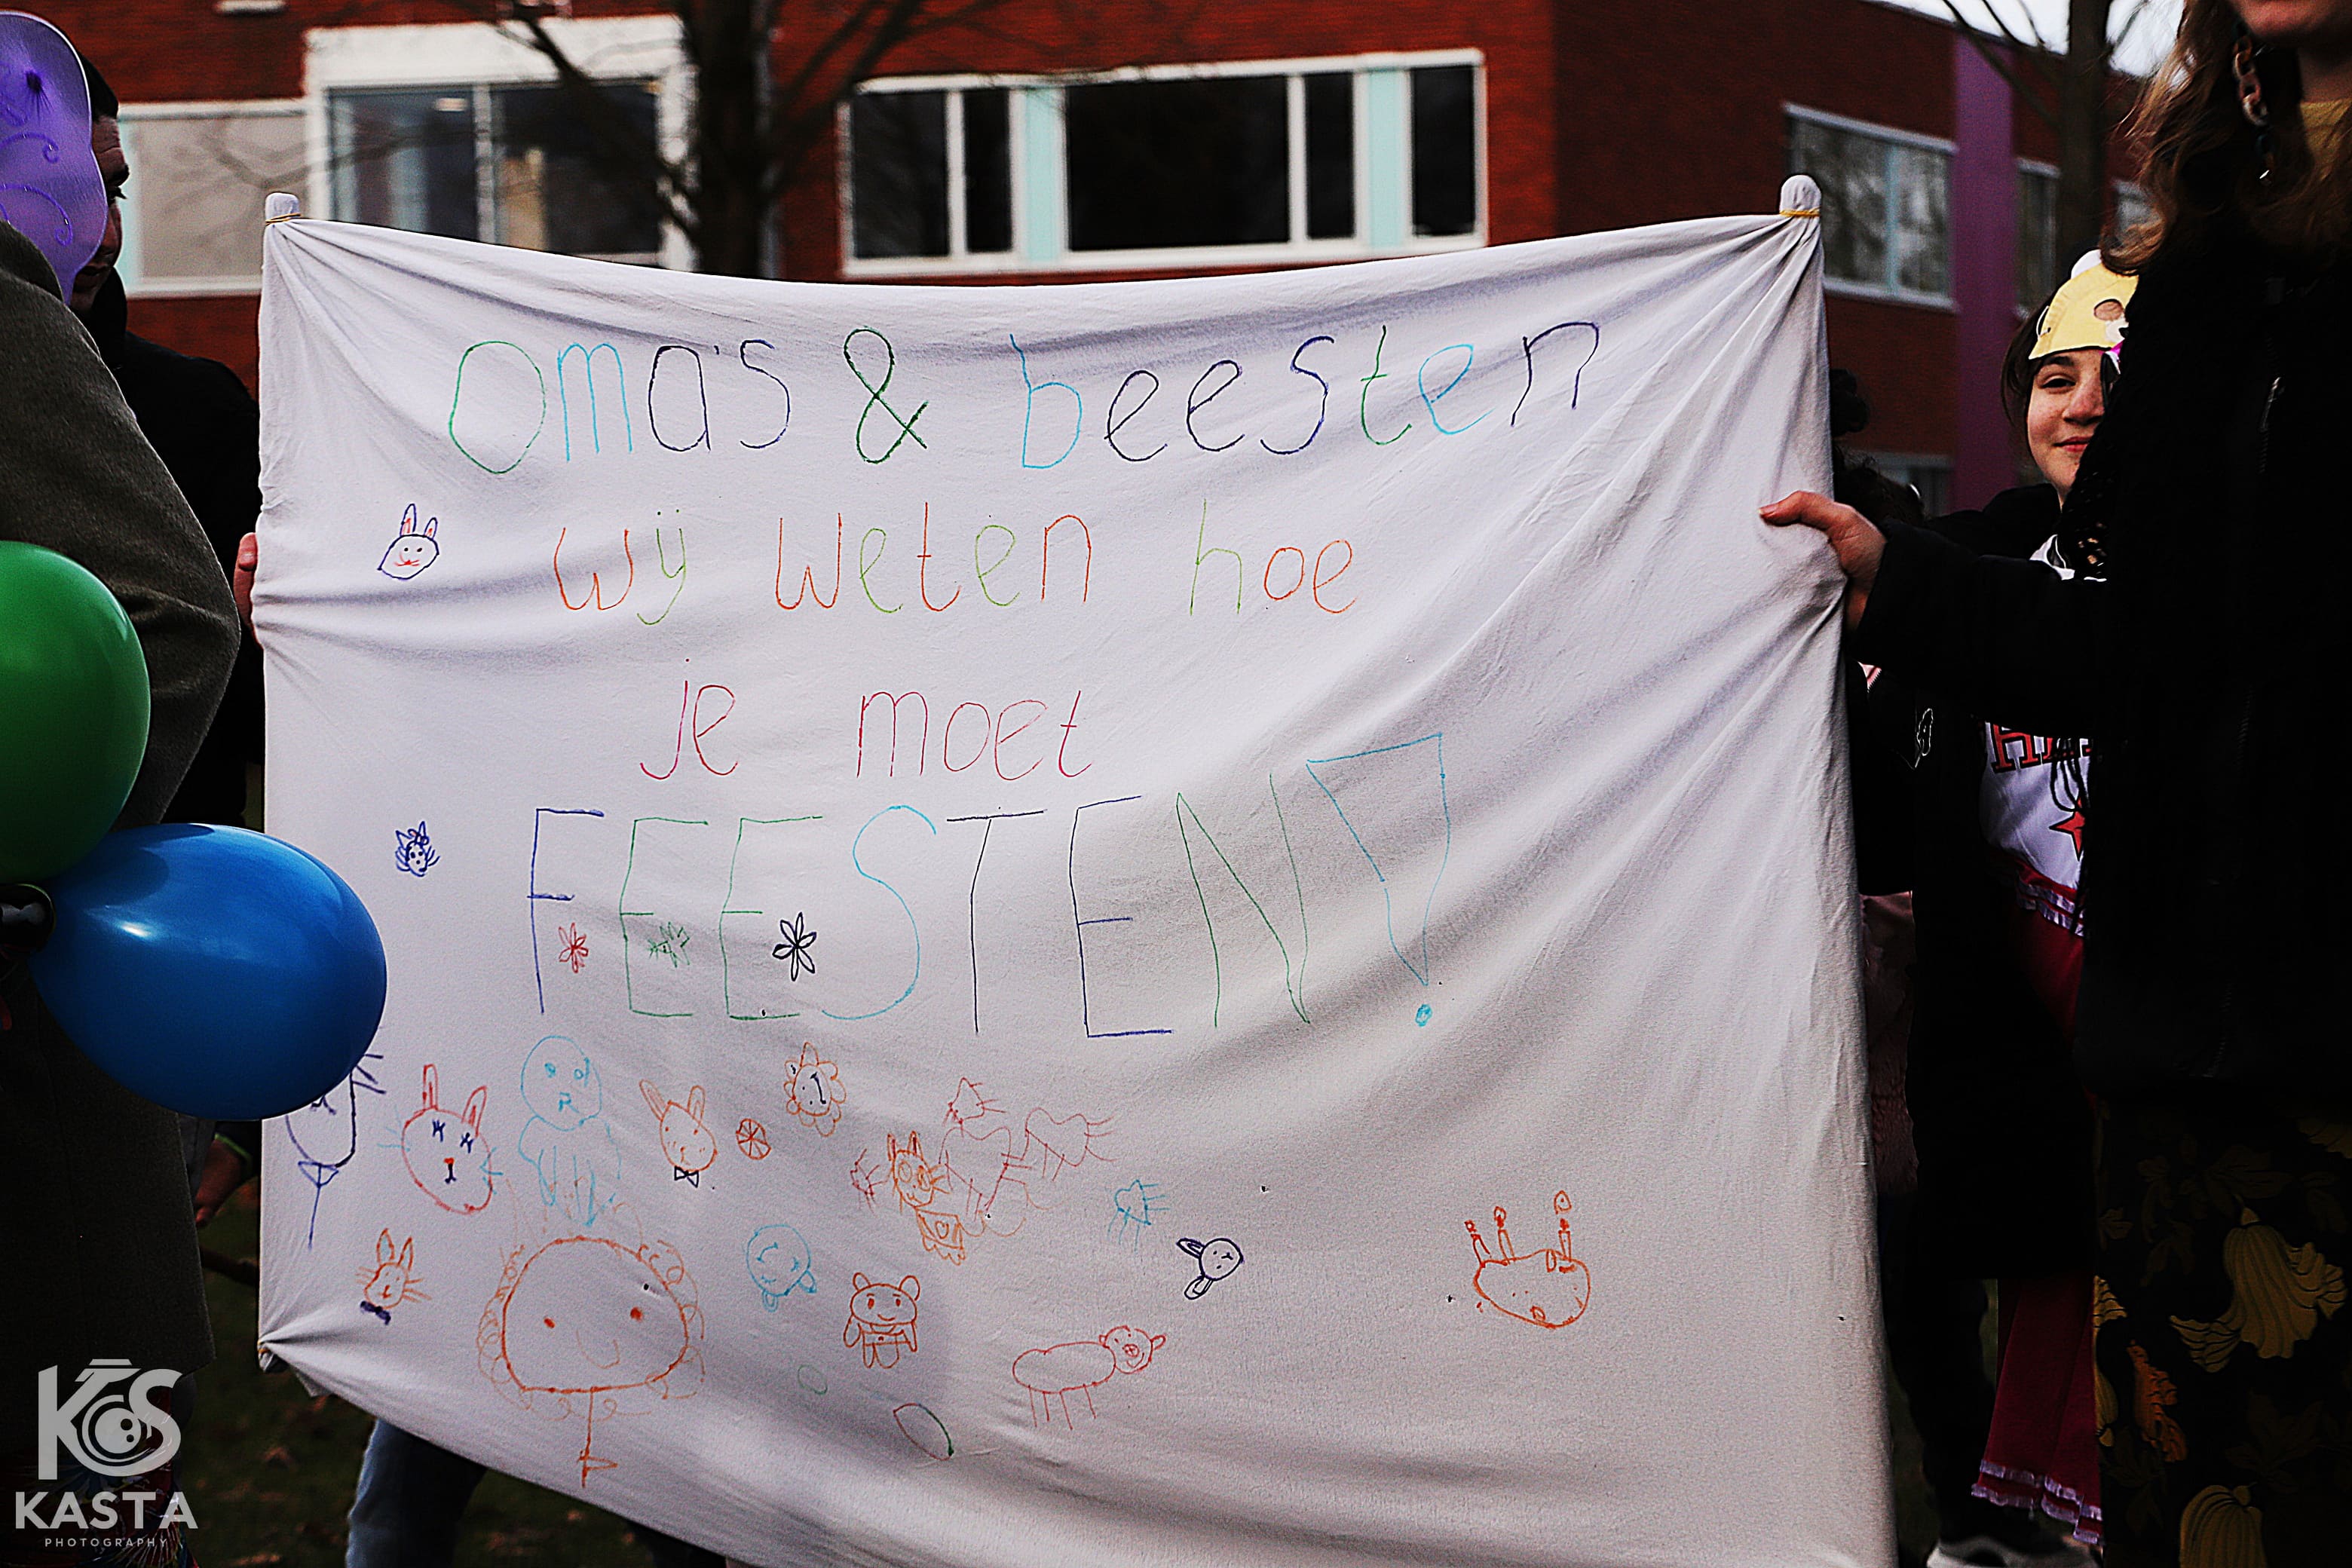 oma's & beesten
wij weten hoe
je moet
FEESTEN!
KAS
KASTA
PHOTOGRAPHY